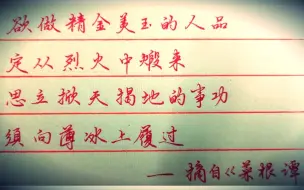 欲做精金美玉的人品
定从烈火中煅来
思立掀天揭地的事功
须向薄冰上履过
— 摘自《菜根谭